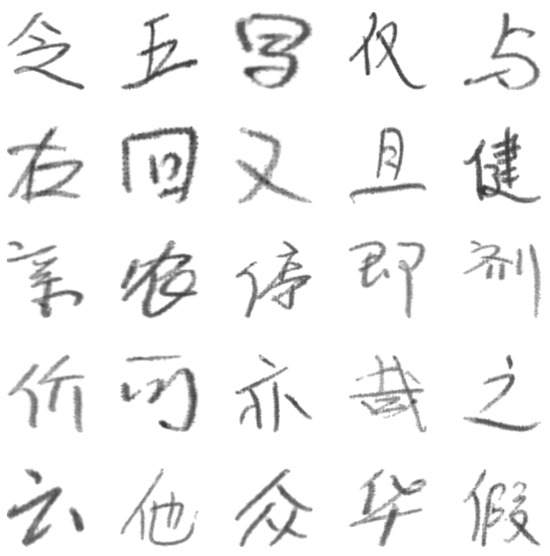 念五写仅与
右回又且健
亲农停即剂
价可亦哉之
云他众华假